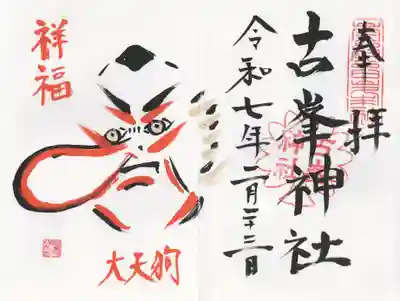 奉拝
古峯神社
令和七年二月二十三日
祥福
大天狗